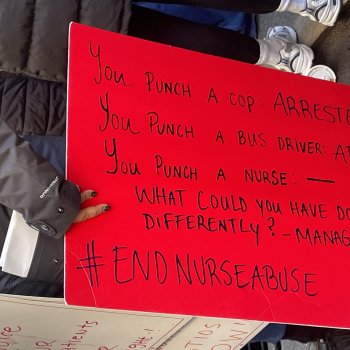 You PUNCH A COP: ARRESTE
You PUNCH A BUS DRIVER: A
You PUNCH A NURSE: —
WHAT COULD YOU HAVE DO
DIFFERENTLY? - MANAG
#ENDNURSEABUSE